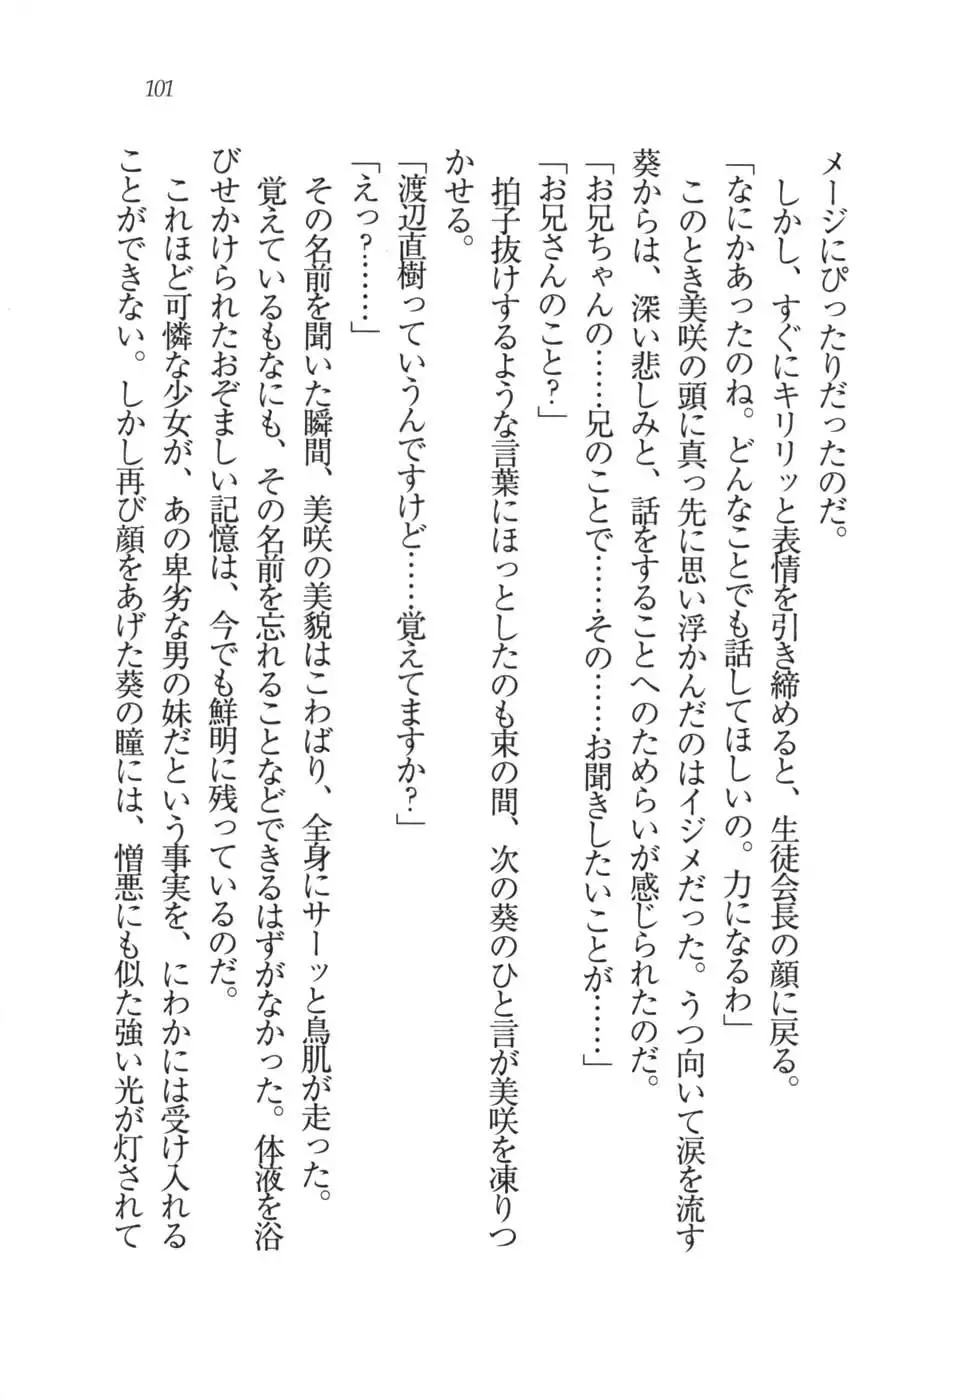 101
メージにぴったりだったのだ。
しかし、すぐにキリリッと表情を引き締めると、生徒会長の顔に戻る。
「なにかあったのね。どんなことでも話してほしいの。力になるわ」
このとき美咲の頭に真っ先に思い浮かんだのはイジメだった。うつ向いて涙を流す
葵からは、深い悲しみと、話をすることへのためらいが感じられたのだ。
「お兄ちゃんの……兄のことで……その……お聞きしたいことが……」
「お兄さんのこと?」
拍子抜けするような言葉にほっとしたのも束の間、次の葵のひと言が美咲を凍りつ
かせる。
「渡辺直樹っていうんですけど……覚えてますか?」
「えっ?……」
その名前を聞いた瞬間、美咲の美貌はこわばり、全身にサーッと鳥肌が走った。
覚えているもなにも、その名前を忘れることなどできるはずがなかった。体液を浴
びせかけられたおぞましい記憶は、今でも鮮明に残っているのだ。
これほど可憐な少女が、あの卑劣な男の妹だという事実を、にわかには受け入れる
ことができない。しかし再び顔をあげた葵の瞳には、憎悪にも似た強い光が灯されて